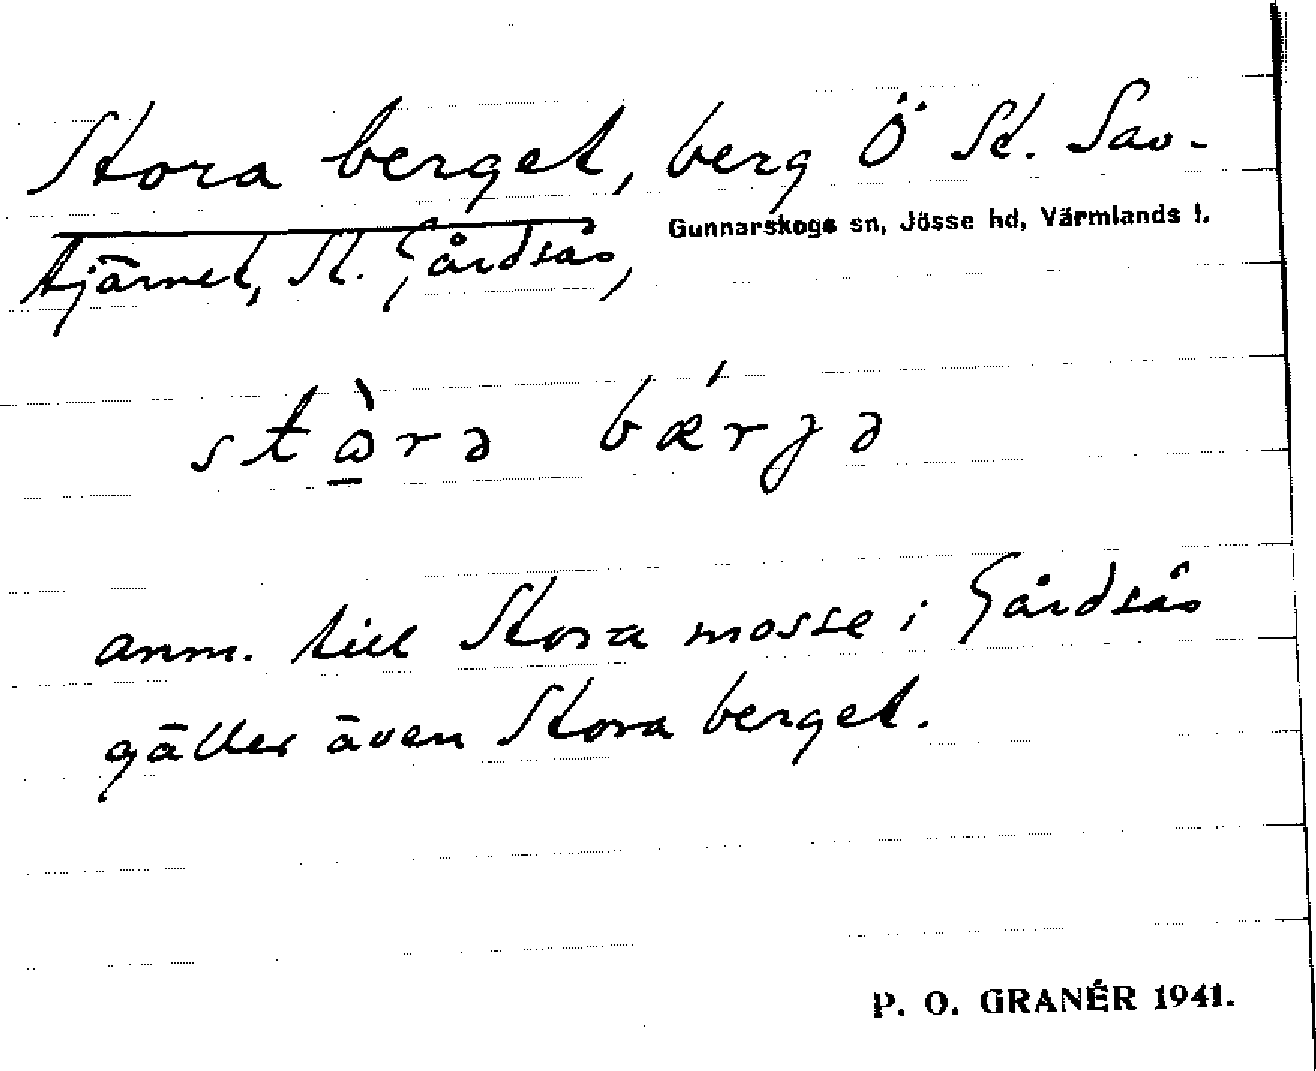 Stora berget, berg Ö St. Sav-
tjärnet, St. Gårdsås, Gunnarskogs sn, Jösse hd, Värmlands l.
stɷ̠̀rə bǽrjə
anm. till Stora mosse i Gårdsås
gäller även Stora berget.
P. O. GRANÉR 1941.